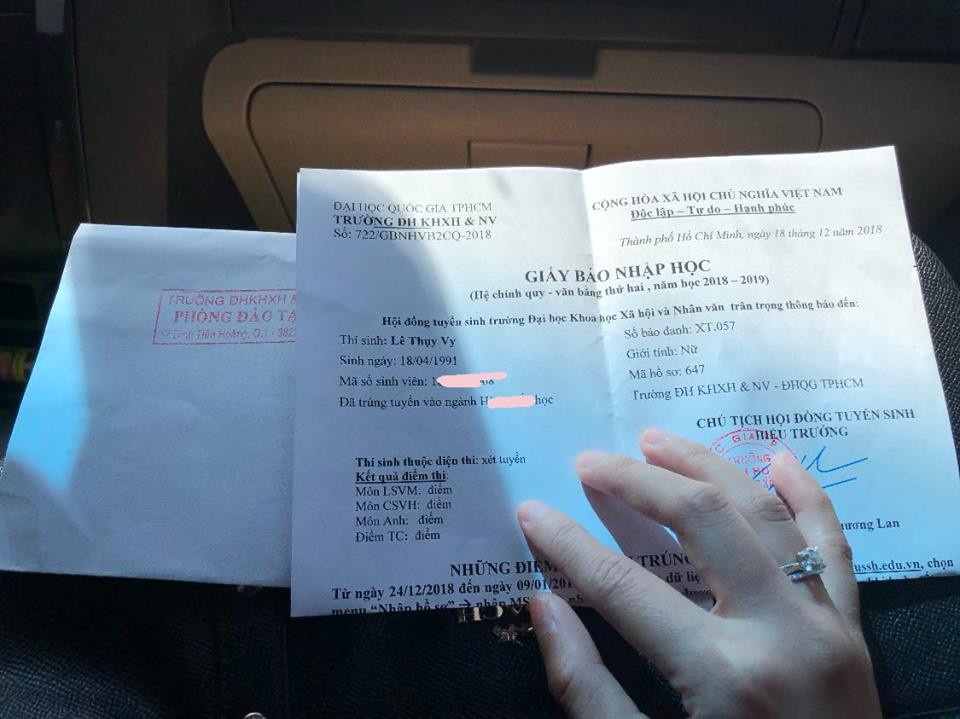 ĐẠI HỌC QUỐC GIA TPHCM
TRƯỜNG ĐH KHXH & NV
Số: 722/GBNHVB2CQ-2018
CỘNG HÒA XÃ HỘI CHỦ NGHĨA VIỆT NAM
Độc lập – Tự do – Hạnh phúc
Thành phố Hồ Chí Minh, ngày 18 tháng 12 năm 2018
GIẤY BÁO NHẬP HỌC
(Hệ chính quy - văn bằng thứ hai , năm học 2018 – 2019)
Hội đồng tuyển sinh trường Đại học Khoa học Xã hội và Nhân văn trân trọng thông báo đến:
Thí sinh: Lê Thụy Vy
Số báo danh: XT.057
Sinh ngày: 18/04/1991
Giới tính: Nữ
Mã số sinh viên:
Mã hồ sơ: 647
Đã trúng tuyển vào ngành học
Trường ĐH KHXH & NV - ĐHQG TPHCM
CHỦ TỊCH HỘI ĐỒNG TUYỂN SINH
HIỆU TRƯỞNG
Thí sinh thuộc diện thi: xét tuyển
Kết quả điểm thi:
Môn LSVM: điểm
Môn CSVH: điểm
Môn Anh: điểm
Điểm TC: điểm
Lan
NHỮNG ĐIỂM TRÚNG
Từ ngày 24/12/2018 đến ngày dữ liệ ussh.edu.vn, chọn
menu “Nhập hồ sơ” → nhập
TRƯỜNG ĐHKHXH &
PHÒNG ĐÀO TẠ
Đinh Tiên Hoàng, Q.1 - 382